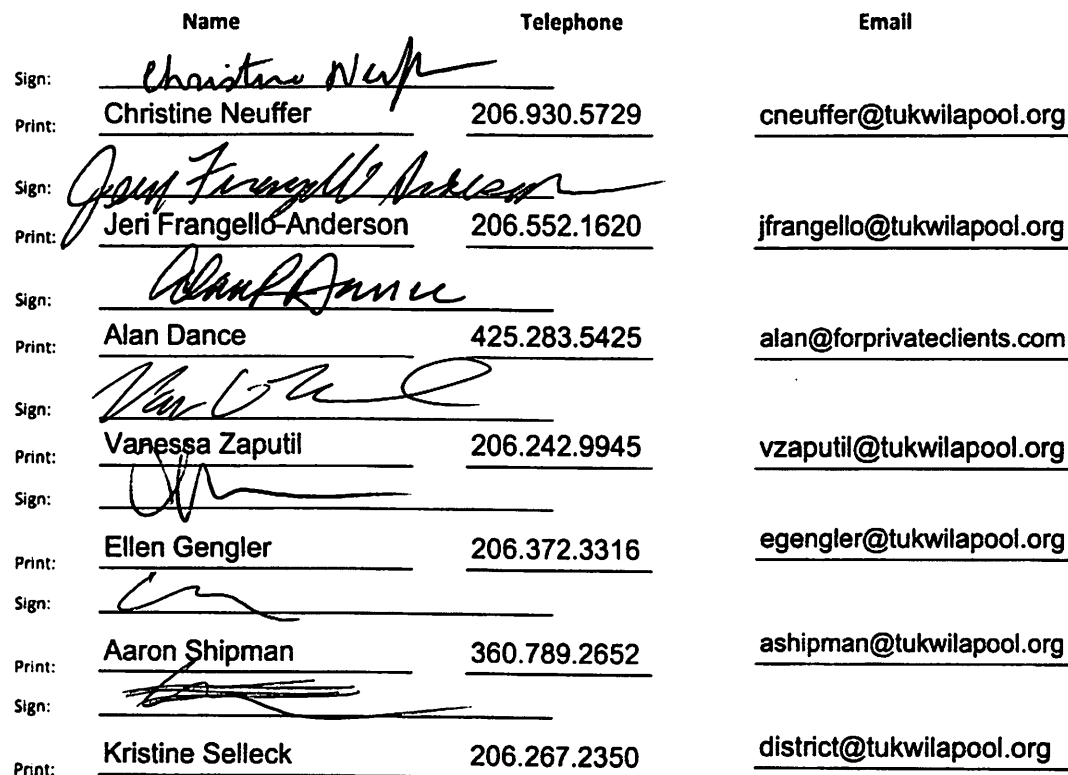 Name Telephone Email
Sign: Christine Neuffer
Print: Christine Neuffer 206.930.5729 cneuffer@tukwilapool.org
Sign: Jeri Frangello Anderson
Print: Jeri Frangello-Anderson 206.552.1620 jfrangello@tukwilapool.org
Sign: Alan Dance
Print: Alan Dance 425.283.5425 alan@forprivateclients.com
Sign:
Print: Vanessa Zaputil 206.242.9945 vzaputil@tukwilapool.org
Sign:
Print: Ellen Gengler 206.372.3316 egengler@tukwilapool.org
Sign:
Print: Aaron Shipman 360.789.2652 ashipman@tukwilapool.org
Sign:
Print: Kristine Selleck 206.267.2350 district@tukwilapool.org